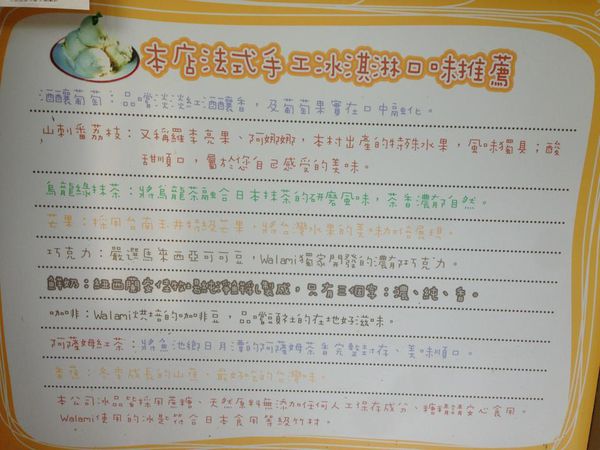 本店法式手工冰淇淋口味推薦
酒釀葡萄：品嚐淡淡紅酒釀香，及葡萄果實在口中融化。
山刺番荔枝：又稱羅李亮果、阿娜娜，本村出產的特殊水果，風味獨具；酸
甜順口，屬於您自己感受的美味。
烏龍綠抹茶：將烏龍茶融合日本抹茶的研磨風味，茶香濃郁自然。
芒果：採用台南玉井特級芒果，將台灣水果的美味加倍展現。
巧克力：嚴選馬來西亞可可豆，Walami獨家開發的濃郁巧克力。
鮮奶：紐西蘭安佳製成，只有三個字：濃、純、香。
咖啡：Walami烘培的咖啡豆，品嚐頭社的在地好滋味。
阿薩姆紅茶：將魚池鄉日月潭的阿薩姆茶香完整封存、美味順口。
香蕉：冬季成長的山蕉、最好吃的台灣味。
本公司冰品皆採用蔗糖、天然原料無添加任何人工保存成分、糖精請安心食用。
Walami使用的冰匙符合日本食用等級竹材。